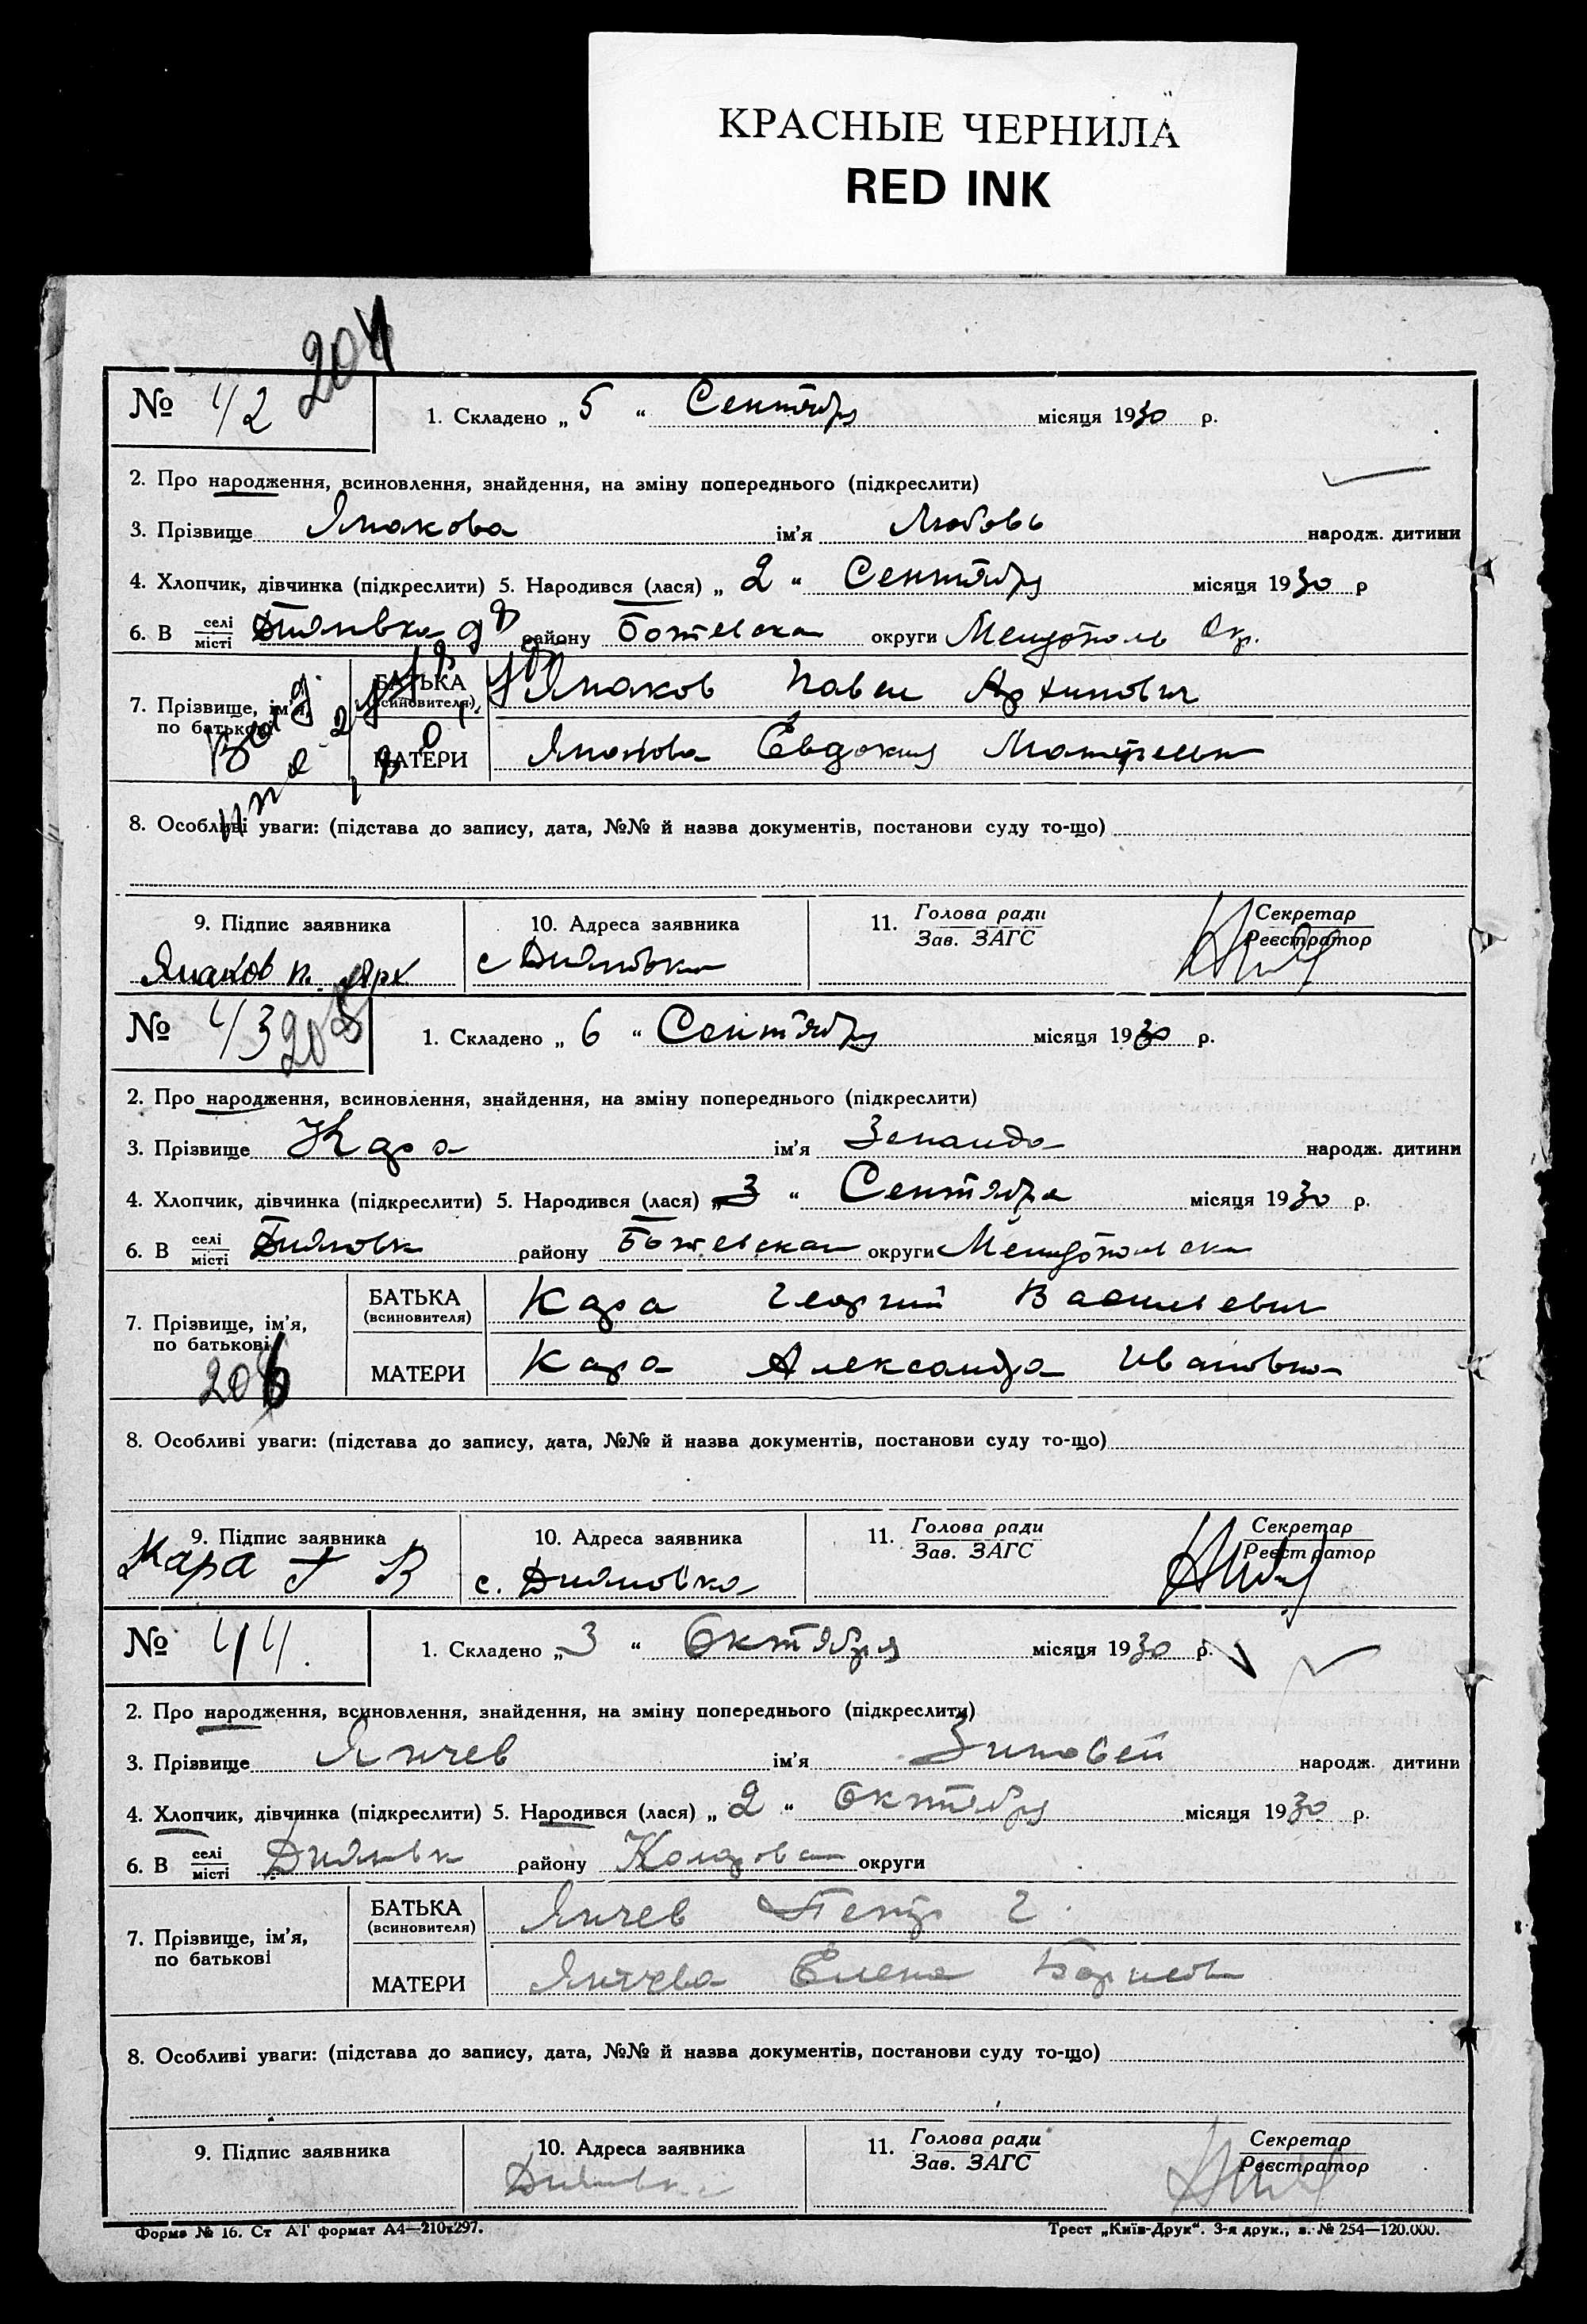 КРАСНЫЕ ЧЕРНИЛА
RED INK
204
№ 42
1. Складено „ 5 “ Сентября місяця 1930 р.
2. Про народження, всиновлення, знайдення, на зміну попереднього (підкреслити)
3. Прізвище ім'я Любовь народж. дитини
4. Хлопчик, дівчинка (підкреслити) 5. Народився (лася) „ 2 “ Сентября місяця 1930 р
6. В селі місті району округи Окр.
7. Прізвище, ім'я, по батькові
БАТЬКА (всиновителя) Павел
МАТЕРИ Евдокия
8. Особливі уваги: (підстава до запису, дата, №№ й назва документів, постанови суду то-що)
9. Підпис заявника 10. Адреса заявника 11. Голова ради Зав. ЗАГС Секретар Реєстратор
с Дияновка
№ 43 205
1. Складено „ 6 “ Сентября місяця 1930 р.
2. Про народження, всиновлення, знайдення, на зміну попереднього (підкреслити)
3. Прізвище Кара ім'я народж. дитини
4. Хлопчик, дівчинка (підкреслити) 5. Народився (лася) „ 3 “ Сентября місяця 1930 р.
6. В селі місті району округи
7. Прізвище, ім'я, по батькові
БАТЬКА (всиновителя) Кара Георгий Васильевич
МАТЕРИ Кара Александра Ивановна
206
8. Особливі уваги: (підстава до запису, дата, №№ й назва документів, постанови суду то-що)
9. Підпис заявника 10. Адреса заявника 11. Голова ради Зав. ЗАГС Секретар Реєстратор
Кара Г В с. Дияновка
№ 44.
1. Складено „ 3 “ Октября місяця 1930 р.
2. Про народження, всиновлення, знайдення, на зміну попереднього (підкреслити)
3. Прізвище Янчев ім'я Зиновей народж. дитини
4. Хлопчик, дівчинка (підкреслити) 5. Народився (лася) „ 2 “ Октября місяця 1930 р.
6. В селі місті району округи
7. Прізвище, ім'я, по батькові
БАТЬКА (всиновителя) Янчев Петр Г.
МАТЕРИ Янчева Елена
8. Особливі уваги: (підстава до запису, дата, №№ й назва документів, постанови суду то-що)
9. Підпис заявника 10. Адреса заявника 11. Голова ради Зав. ЗАГС Секретар Реєстратор
Форма № 16. Ст АТ формат А4—210х297. Трест „Київ-Друк“. 3-я друк., з. № 254—120.000.